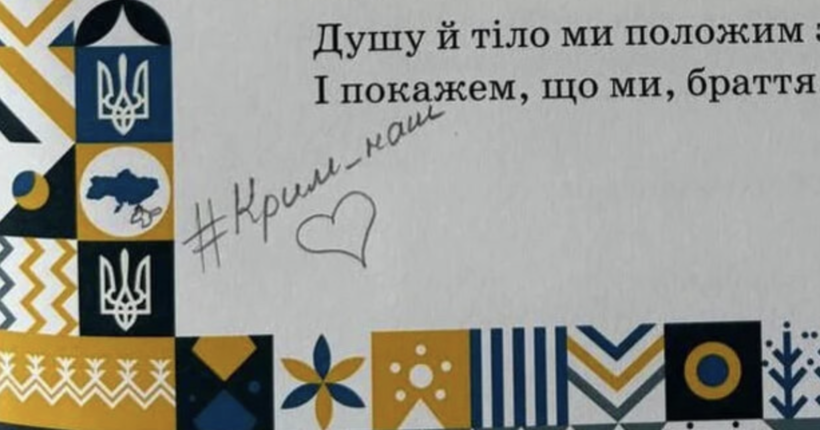 Душу й тіло ми положим з
І покажем, що ми, браття
#Крим_наш